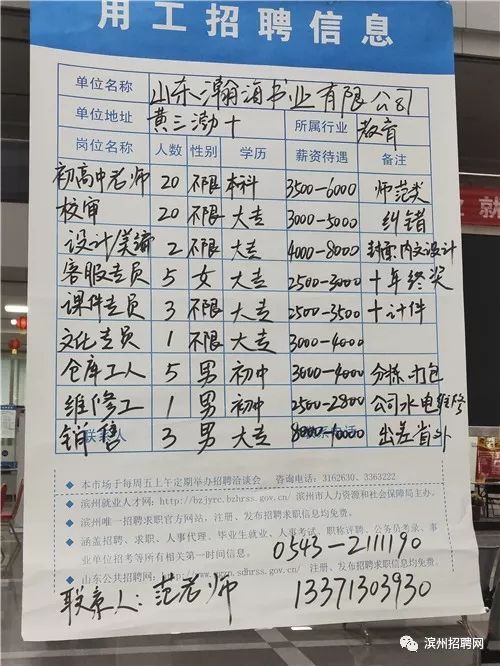 用工招聘信息
单位名称 山东瀚海书业有限公司
单位地址 黄三渤十 所属行业 教育
岗位名称 人数 性别 学历 薪资待遇 备注
初高中老师 20 不限 本科 3500-6000 师范类
校审 20 不限 大专 3000-5000 纠错
设计/美编 2 不限 大专 4000-8000 封面、内文设计
客服专员 5 女 大专 2500-3000 +年终奖
课件专员 3 不限 大专 2500-3500 +计件
文化专员 1 不限 大专 3000-4000
仓库工人 5 男 初中 3000-4000 分拣、打包
维修工 1 男 初中 2500-2800 公司水电维修
销售 3 男 大专 8000-10000 出差省外
◆ 本市场于每周五上午定期举办招聘洽谈会 咨询电话：3162630、3363222
◆ 滨州就业人才网：http://bzjyrc.bzhrss.gov.cn/ 滨州市人力资源和社会保障局主办。
◆ 滨州唯一招聘求职官方网站，注册、发布招聘求职信息均免费。
◆ 涵盖招聘、求职、人事代理、毕业生就业、人事考试、职称评聘、公务员考录、事
业单位招考等所有相关第一时间信息。
0543-2111190
◆ 山东公共招聘网：http://www.sdhrss.gov.cn/ 注册、发布招聘求职信息均免费。
联系人：范老师 13371303930
就
滨州招聘网